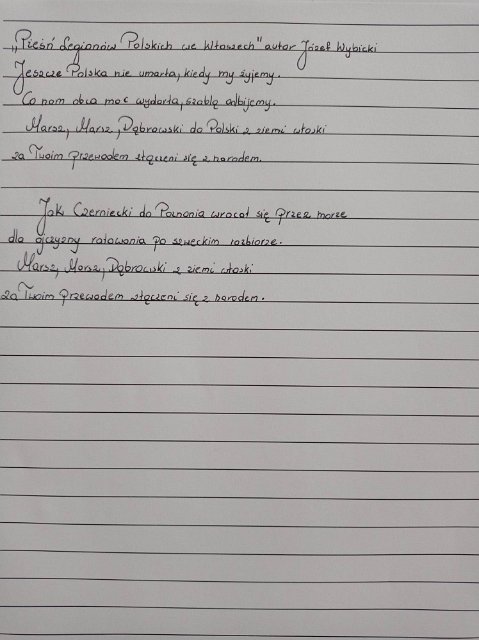 „Pieśń Legionów Polskich we Włoszech" autor Józef Wybicki
Jeszcze Polska nie umarła, kiedy my żyjemy.
Co nam obca moc wydarła, szablą odbijemy.
Marsz, Marsz, Dąbrowski do Polski z ziemi włoski
za Twoim przewodem złączeni się z narodem.
Jak Czerniecki do Poznania wracał się przez morze
dla ojczyzny ratowania po szweckim rozbiorze.
Marsz, Marsz, Dąbrowski z ziemi włoski
za Twoim przewodem złączeni się z narodem.